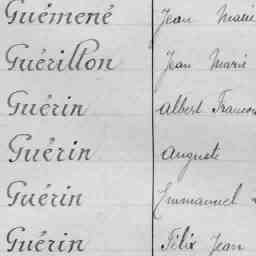 Guémené Jean Marie
Guérillon Jean Marie
Guérin Albert
Guérin Auguste
Guérin Emmanuel
Guérin Félix Jean